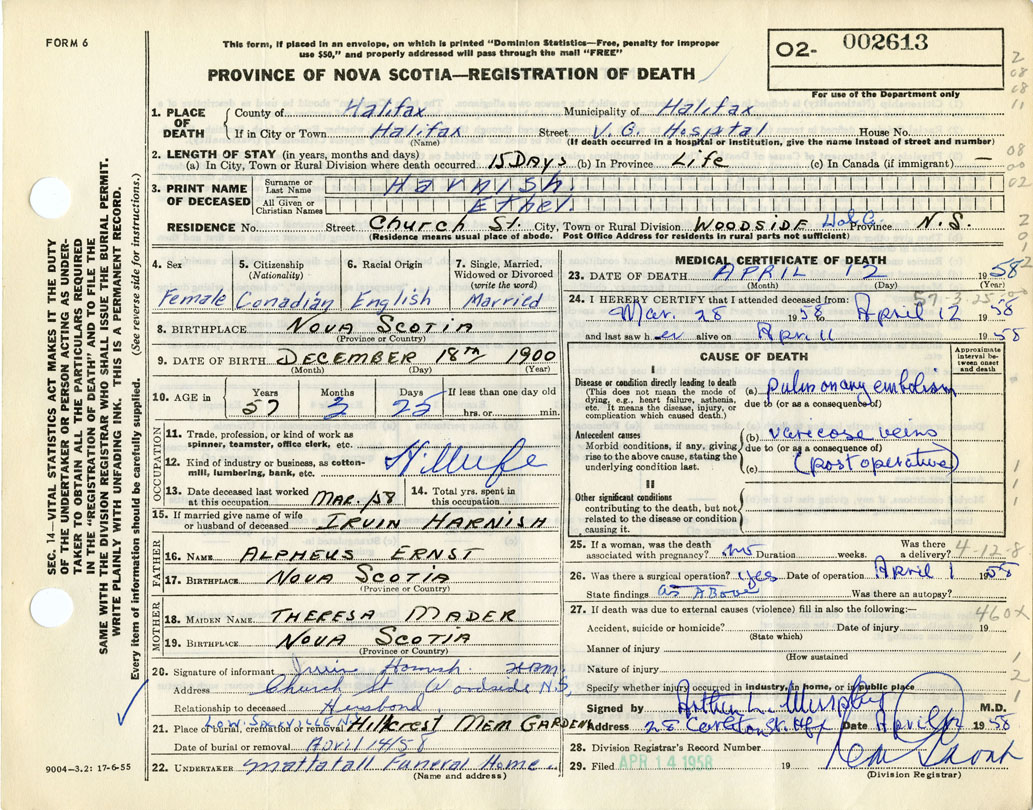 FORM 6
This form, if placed in an envelope, on which is printed "Dominion Statistics—Free, penalty for improper
use $50," and properly addressed will pass through the mail "FREE"
PROVINCE OF NOVA SCOTIA—REGISTRATION OF DEATH
O2- 002613
For use of the Department only
1. PLACE OF DEATH
County of Halifax Municipality of Halifax
If in City or Town Halifax Street V. G. Hospital House No.
(Name) (If death occurred in a hospital or institution, give the name instead of street and number)
2. LENGTH OF STAY (in years, months and days)
(a) In City, Town or Rural Division where death occurred 15 Days (b) In Province Life (c) In Canada (if immigrant) —
3. PRINT NAME OF DECEASED
Surname or Last Name Harnish.
All Given or Christian Names Ethel.
RESIDENCE No. Street Church St. City, Town or Rural Division WOODSIDE Province N.S.
(Residence means usual place of abode. Post Office Address for residents in rural parts not sufficient)
4. Sex
Female
5. Citizenship
(Nationality)
Canadian
6. Racial Origin
English
7. Single, Married, Widowed or Divorced
(write the word)
Married
8. BIRTHPLACE NOVA SCOTIA
(Province or Country)
9. DATE OF BIRTH DECEMBER 18TH 1900
(Month) (Day) (Year)
10. AGE in
Years Months Days If less than one day old
57 3 25 hrs. or min.
OCCUPATION
11. Trade, profession, or kind of work as
spinner, teamster, office clerk, etc.
12. Kind of industry or business, as cotton-
mill, lumbering, bank, etc. H. Wife
13. Date deceased last worked
at this occupation MAR. /58
14. Total yrs. spent in
this occupation
15. If married give name of wife
or husband of deceased IRVIN HARNISH
FATHER
16. NAME ALPHEUS ERNST
17. BIRTHPLACE NOVA SCOTIA
(Province or Country)
MOTHER
18. MAIDEN NAME THERESA MADER
19. BIRTHPLACE NOVA SCOTIA
(Province or Country)
20. Signature of informant Irvin Harnish.
Address Church St Woodside N.S.
Relationship to deceased Husband
21. Place of burial, cremation or removal LOW. SACKVILLE N.S. Hillcrest MEM GARDENS
Date of burial or removal April 14/58
22. UNDERTAKER Mattatall Funeral Home
(Name and address)
9004—3.2: 17-6-55
SEC. 14—VITAL STATISTICS ACT MAKES IT THE DUTY
OF THE UNDERTAKER OR PERSON ACTING AS UNDER-
TAKER TO OBTAIN ALL THE PARTICULARS REQUIRED
IN THE "REGISTRATION OF DEATH" AND TO FILE THE
SAME WITH THE DIVISION REGISTRAR WHO SHALL ISSUE THE BURIAL PERMIT.
WRITE PLAINLY WITH UNFADING INK. THIS IS A PERMANENT RECORD.
Every item of information should be carefully supplied. (See reverse side for instructions.)
MEDICAL CERTIFICATE OF DEATH
23. DATE OF DEATH APRIL 12 1958
(Month) (Day) (Year)
57-3-25
24. I HEREBY CERTIFY that I attended deceased from:
Mar. 28 1958 to April 12 1958
and last saw her alive on April 11 1958
CAUSE OF DEATH
Approximate interval between onset and death
I
Disease or condition directly leading to death
(This does not mean the mode of
dying, e.g., heart failure, asthenia,
etc. It means the disease, injury, or
complication which caused death.)
(a) pulmonary embolism
due to (or as a consequence of)
Antecedent causes
Morbid conditions, if any, giving
rise to the above cause, stating the
underlying condition last.
(b) varicose veins
due to (or as a consequence of)
(c) (post operative)
II
Other significant conditions
contributing to the death, but not
related to the disease or condition
causing it.
25. If a woman, was the death
associated with pregnancy? no Duration weeks. Was there
a delivery? 4-12-8
26. Was there a surgical operation? yes Date of operation April 1 1958
State findings as Above Was there an autopsy?
27. If death was due to external causes (violence) fill in also the following:— 460x
Accident, suicide or homicide? Date of injury 19
(State which)
Manner of injury
(How sustained
Nature of injury
Specify whether injury occurred in industry, in home, or in public place
Signed by Arthur L. Murphy M.D.
Address 28 Carleton St. Hfx Date April 12 1958
28. Division Registrar's Record Number
29. Filed APR 14 1958 19
(Division Registrar)